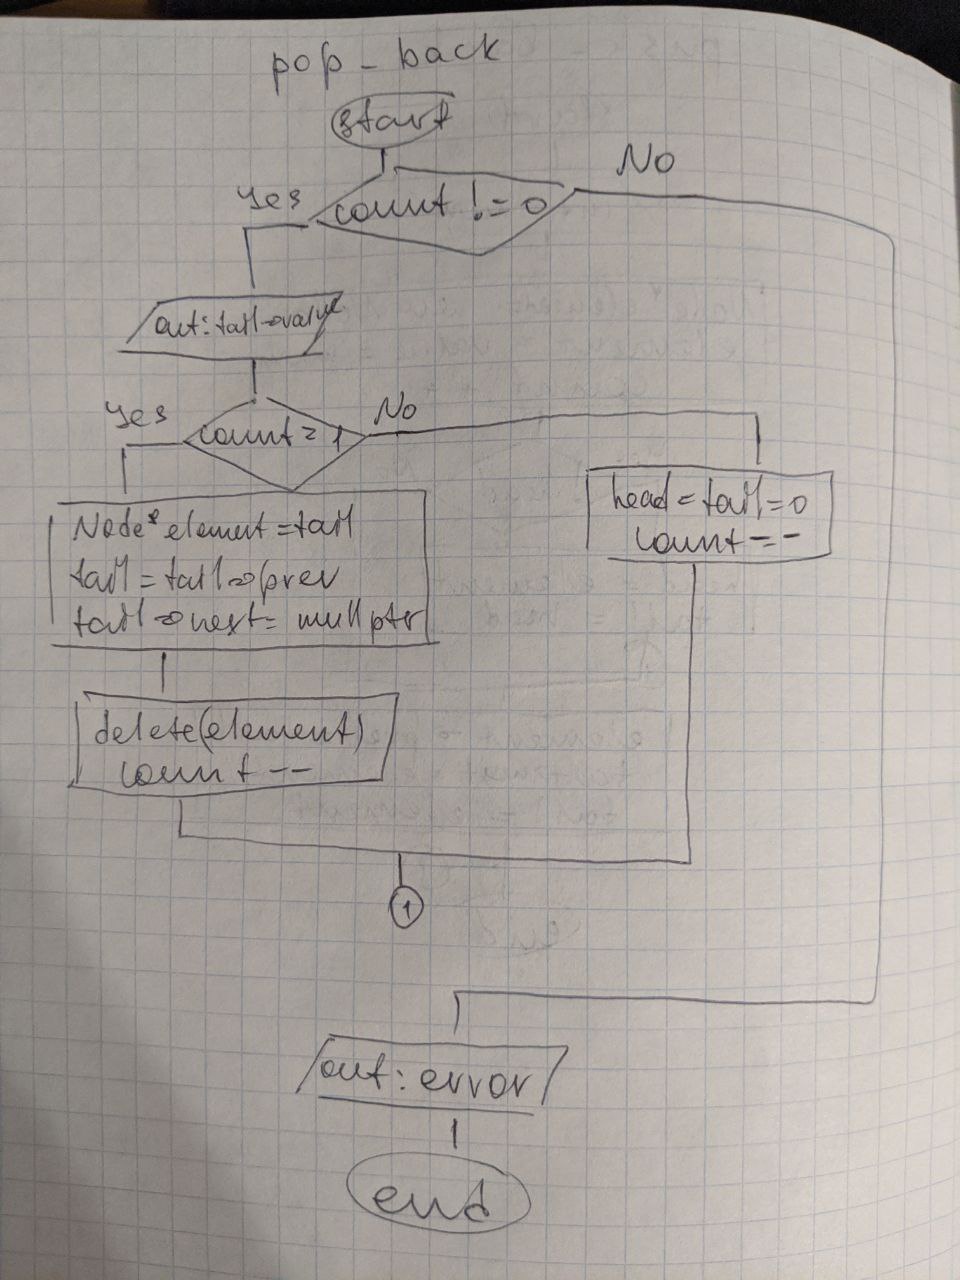 pop_back
start
No
yes
count != 0
out: tail->value
yes
No
count = 1
Node* element = tail
tail = tail->prev
tail->next = nullptr
head = tail = 0
count--
delete(element)
count --
1
out: error
end